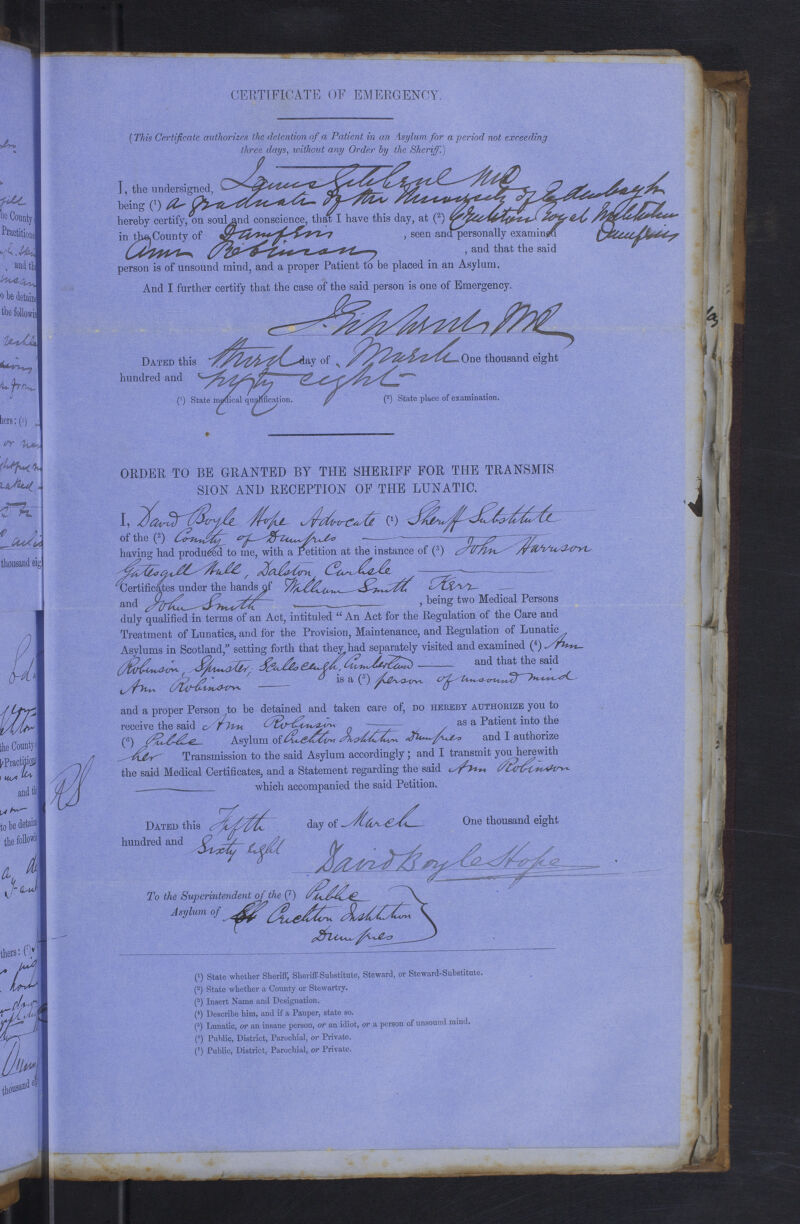 CERTIFICATE OF EMERGENCY.
(This Certificate authorizes the detention of a Patient in an Asylum for a period not exceeding
three days, without any Order by the Sheriff.)
I, the undersigned, James Gilchrist MD
being (¹) a graduate of the University of Edinburgh
hereby certify, on soul and conscience, that I have this day, at (²) Crichton Royal Institution
in the County of Dumfries , seen and personally examined Dumfries
Ann Robinson , and that the said
person is of unsound mind, and a proper Patient to be placed in an Asylum.
And I further certify that the case of the said person is one of Emergency.
J. Gilchrist MD
DATED this third day of March One thousand eight
hundred and eight
(¹) State medical qualification. (²) State place of examination.
ORDER TO BE GRANTED BY THE SHERIFF FOR THE TRANSMIS
SION AND RECEPTION OF THE LUNATIC.
I, David Boyle Hope Advocate (¹) Sheriff Substitute
of the (²) County of Dumfries
having had produced to me, with a Petition at the instance of (³) John Harrison
Gatesgill Hall, Dalston, Carlisle
Certificates under the hands of William Smith Kerr
and John Smith , being two Medical Persons
duly qualified in terms of an Act, intituled “An Act for the Regulation of the Care and
Treatment of Lunatics, and for the Provision, Maintenance, and Regulation of Lunatic
Asylums in Scotland,” setting forth that they had separately visited and examined (⁴) Ann
Robinson, Spinster, Scalesceugh, Cumberland and that the said
Ann Robinson is a (⁵) person of unsound mind
and a proper Person to be detained and taken care of, DO HEREBY AUTHORIZE you to
receive the said Ann Robinson as a Patient into the
(⁶) Public Asylum of Crichton Institution Dumfries and I authorize
her Transmission to the said Asylum accordingly; and I transmit you herewith
the said Medical Certificates, and a Statement regarding the said Ann Robinson
which accompanied the said Petition.
DATED this Fifth day of March One thousand eight
hundred and Sixty eight
David Boyle Hope
To the Superintendent of the (⁷) Public
Asylum of Crichton Institution
Dumfries
(¹) State whether Sheriff, Sheriff-Substitute, Steward, or Steward-Substitute.
(²) State whether a County or Stewartry.
(³) Insert Name and Designation.
(⁴) Describe him, and if a Pauper, state so.
(⁵) Lunatic, or an insane person, or an idiot, or a person of unsound mind.
(⁶) Public, District, Parochial, or Private.
(⁷) Public, District, Parochial, or Private.